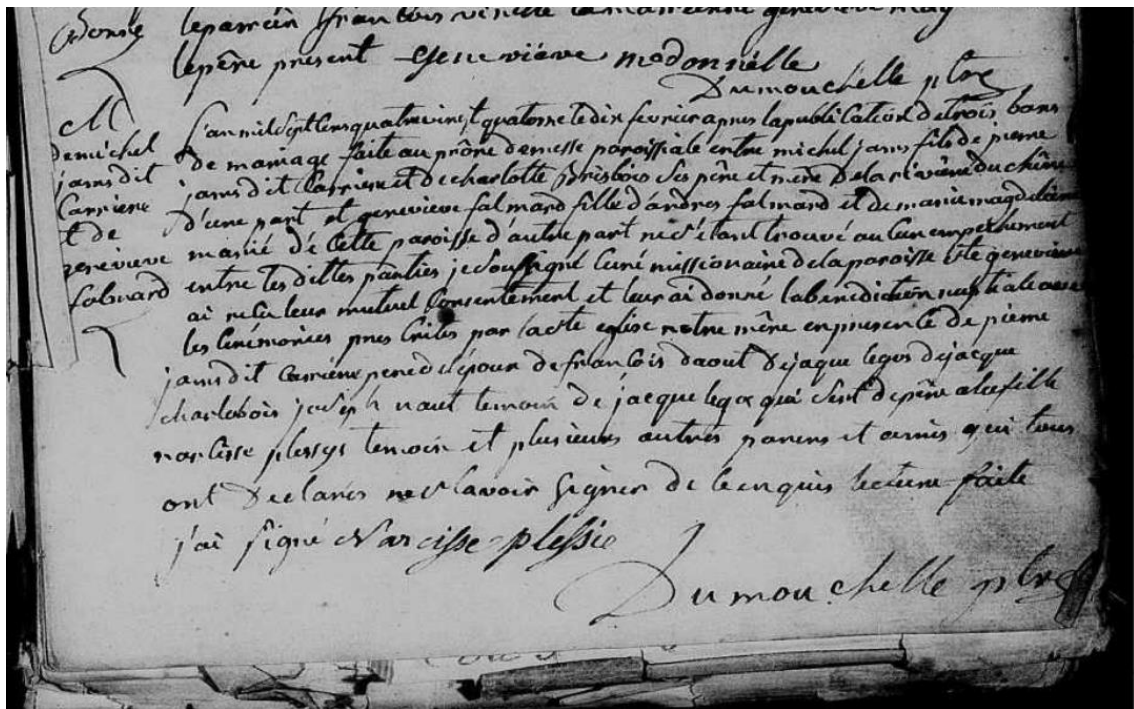 le parrein françois la marenne geneviève
le père present Geneviéve mcdonnélle
Dumouchelle ptre
M
de michel
jams dit
Carriere
et de
genevieve
falmard
L'an mil Sept Cens quatrevingt quatorse le dix fevrier apres la publication de trois bans
de mariage faite au prône de messe paroissiale entre michel jams fils de pierre
jams dit Carriere et de charlotte Brisbois Ses père et mère de la rivière du chêne
d'une part et genevieve falmard fille d'andres falmard et de marie magdelaine
marié de Cette paroisse d'autre part ne s'étant trouvé aucun empechement
entre les dittes parties je Soussigné Curé missionaire de la paroisse Ste genevieve
ai reçu leur mutuel Consentement et leur ai donné la benediction nuptiale avec
les Cérémonies prescrites par la Ste eglise notre mère en presence de pierre
jams dit Carrière pere de l'épour de françois daout de jaque legos de jacque
charlebois joseph naut temoin de jacque legos qui Sert de père a la fille
narcisse plessys temoin et plusieurs autres parens et amis qui tous
ont Declarés ne Scavoir Signer de Ce enquis lecture faite
j'ai signé Narcisse plessie
Dumouchelle ptre